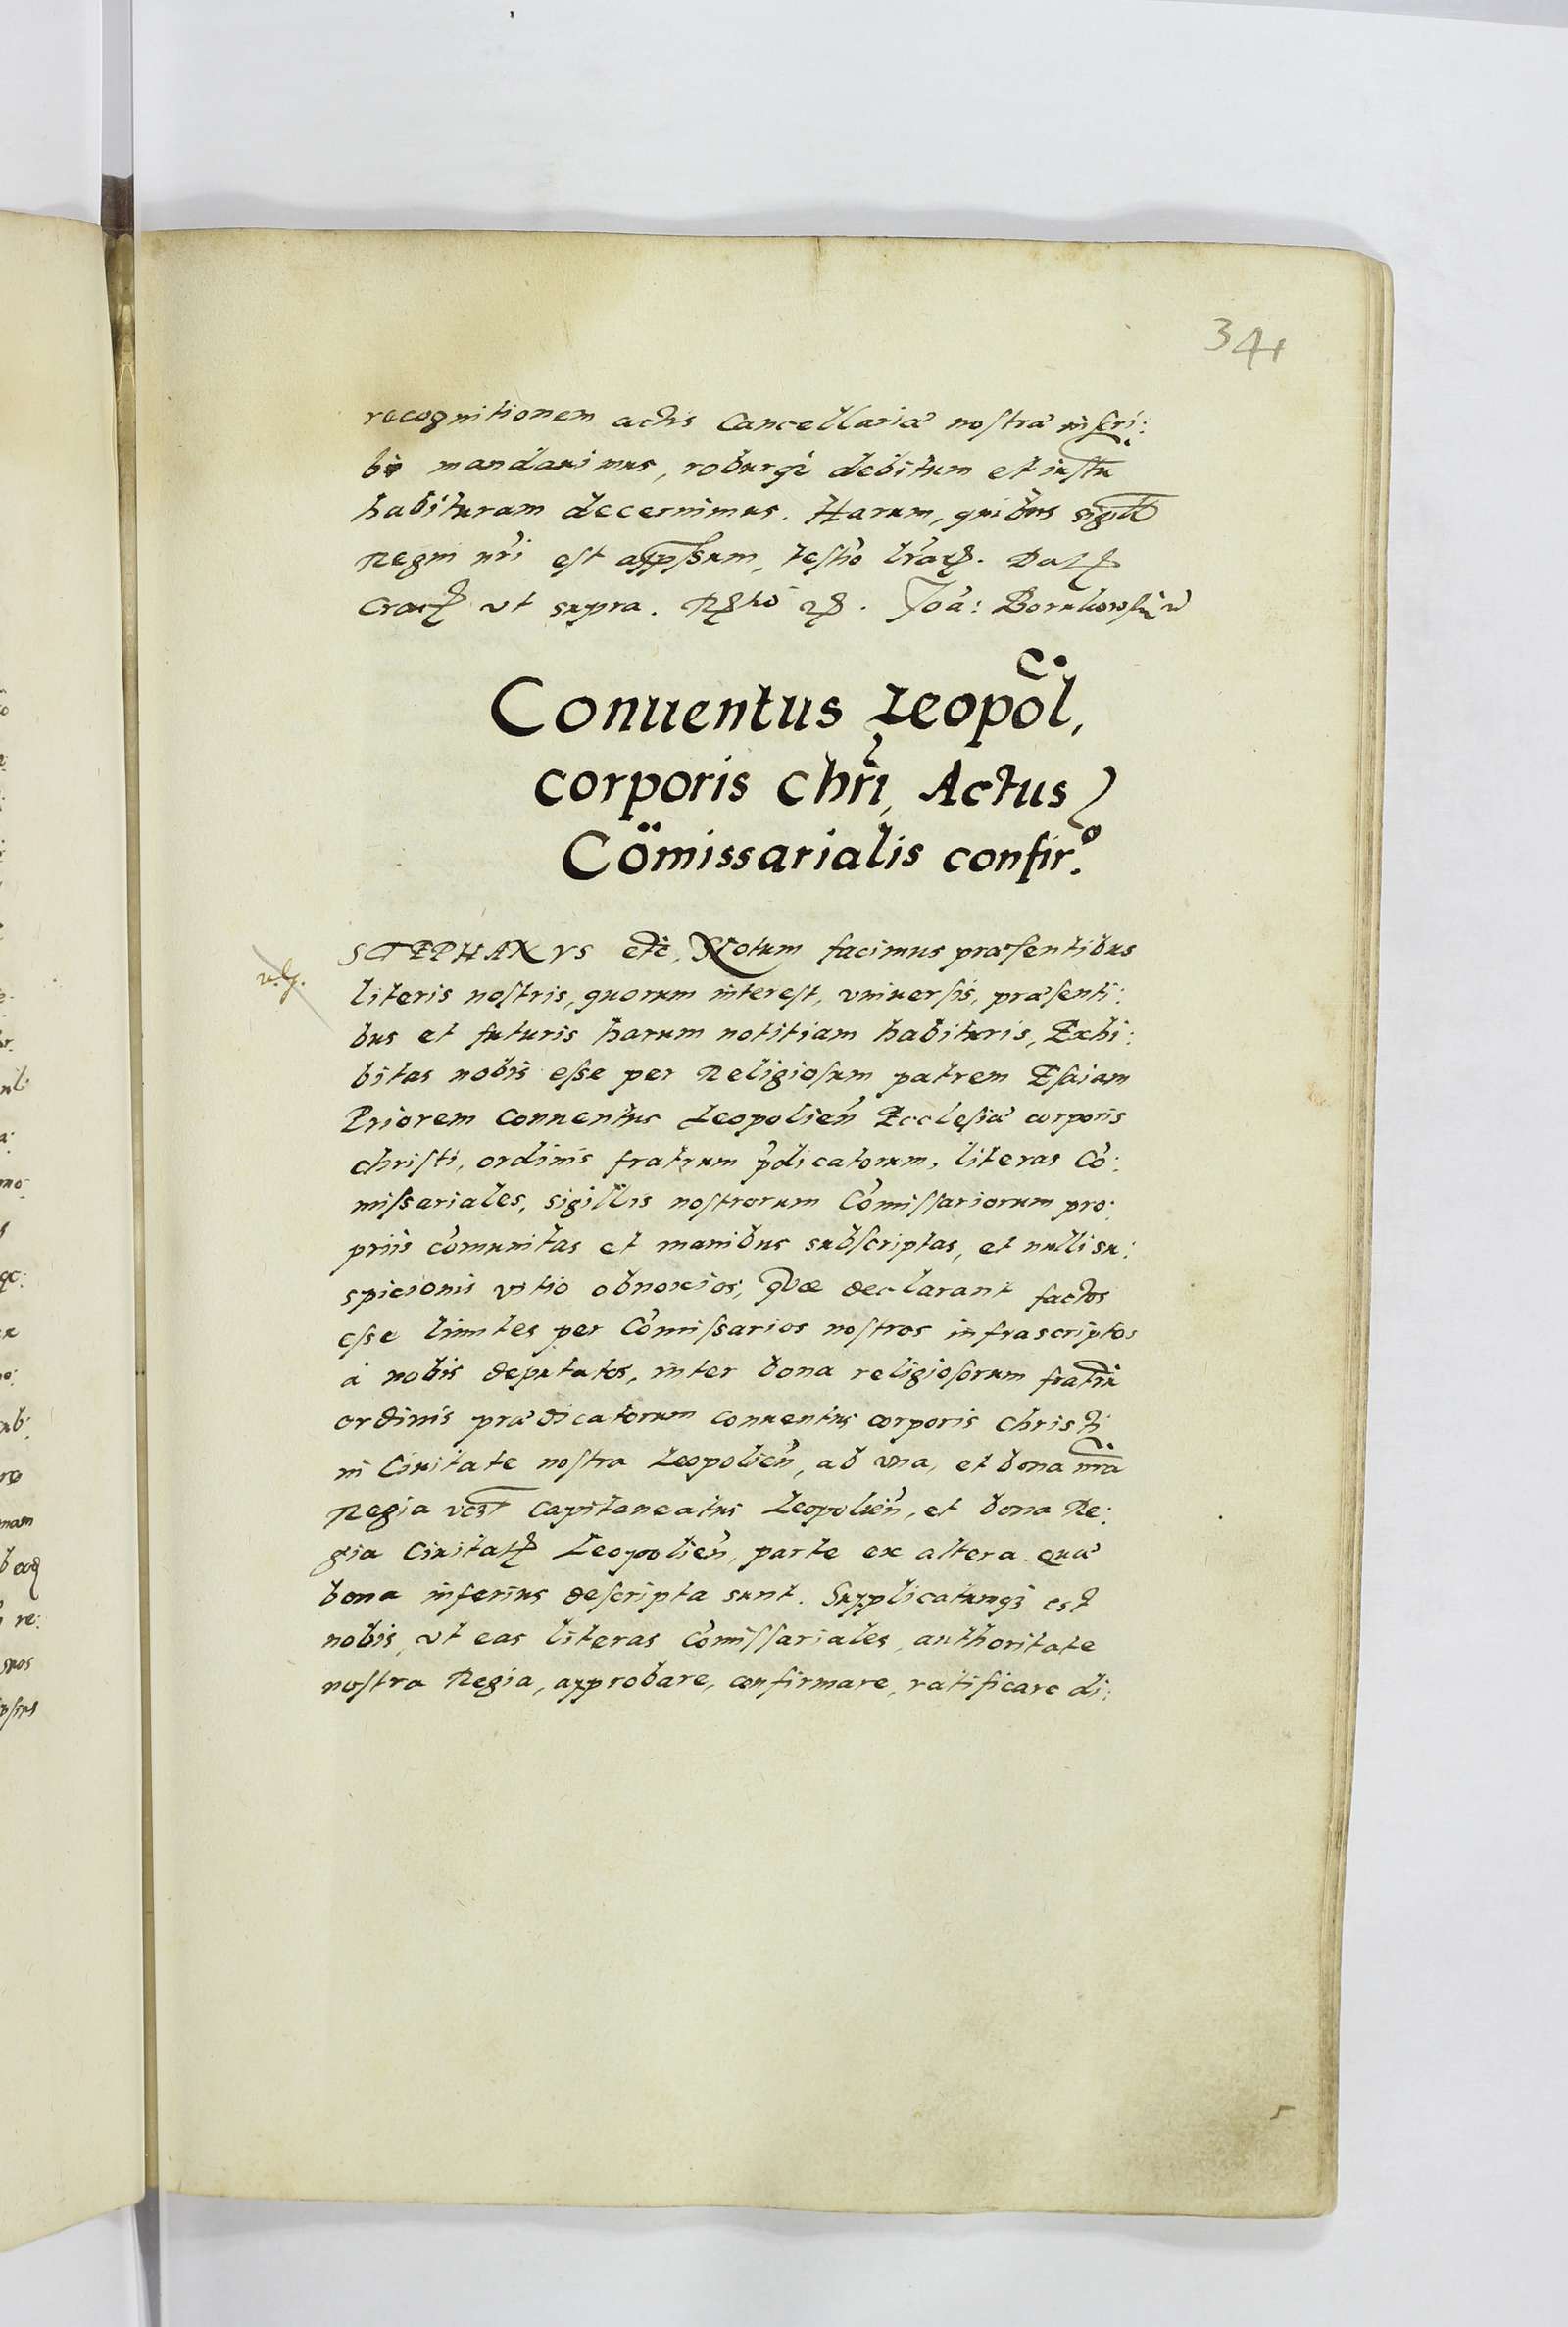 341
recognitionem actis Cancellariæ nostræ inscri:
bi mandauimus, roburq3 debitum et iustū
habituram decernimus. Harum, quibus sigill
Regni nr̃i est appssum, testiō lr̃aꝝ. Datꝭ
Cracꝭ vt supra. Joã: Borukowski
Conuentus Leopol̃,
corporis chr̃i, Actus
Cõmissarialis confir.º
STEPHANVS etc̃, Notum facimus præsentibus
literis nostris, quorum interest, vniuersis, præsenti:
bus et futuris harum notitiam habituris, Exhi:
bitas nobis esse per Religiosum patrem Esaiam
Priorem Conuentus Leopolieñ Ecclesiæ corporis
christi, ordinis fratrum p̃dicatorum, literas Cõ:
missariales, sigillis nostrorum Cõmissariorum pro:
priis cõmunitas et manibus subscriptas, et nulli su:
spicionis vitio obnoxios; quæ declarant factos
esse limites per Cõmissarios nostros infrascriptos
à nobis deputatos, inter bona religiosorum fratrũ
ordinis prædicatorum conuentus corporis christi
in Ciuitate nostra Leopolieñ, ab vna, et bona nr̃a
Regia vc3t Capitaneatus Leopolieñ, et bona Re:
gia Ciuitatꝭ Leopolieñ, parte ex altera. quæ
bona inferius descripta sunt. Supplicatumq3 est
nobis, vt eas literas Cõmissariales, authoritate
nostra Regia, approbare, confirmare, ratificare di: